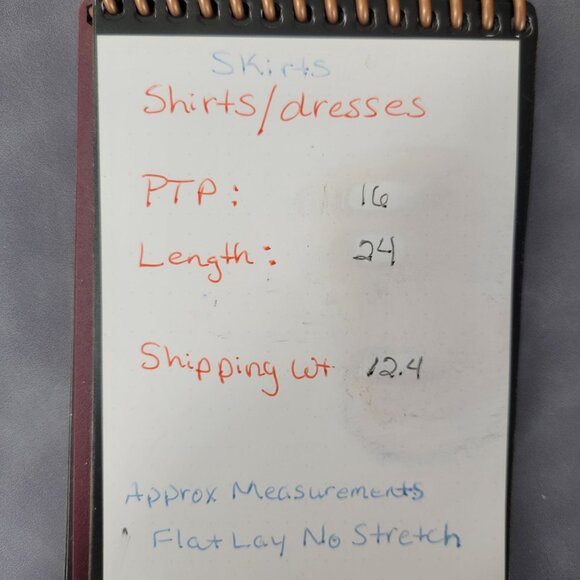 Skirts
Shirts/dresses
PTP: 16
Length: 24
Shipping Wt 12.4
Approx Measurements
Flat Lay No Stretch